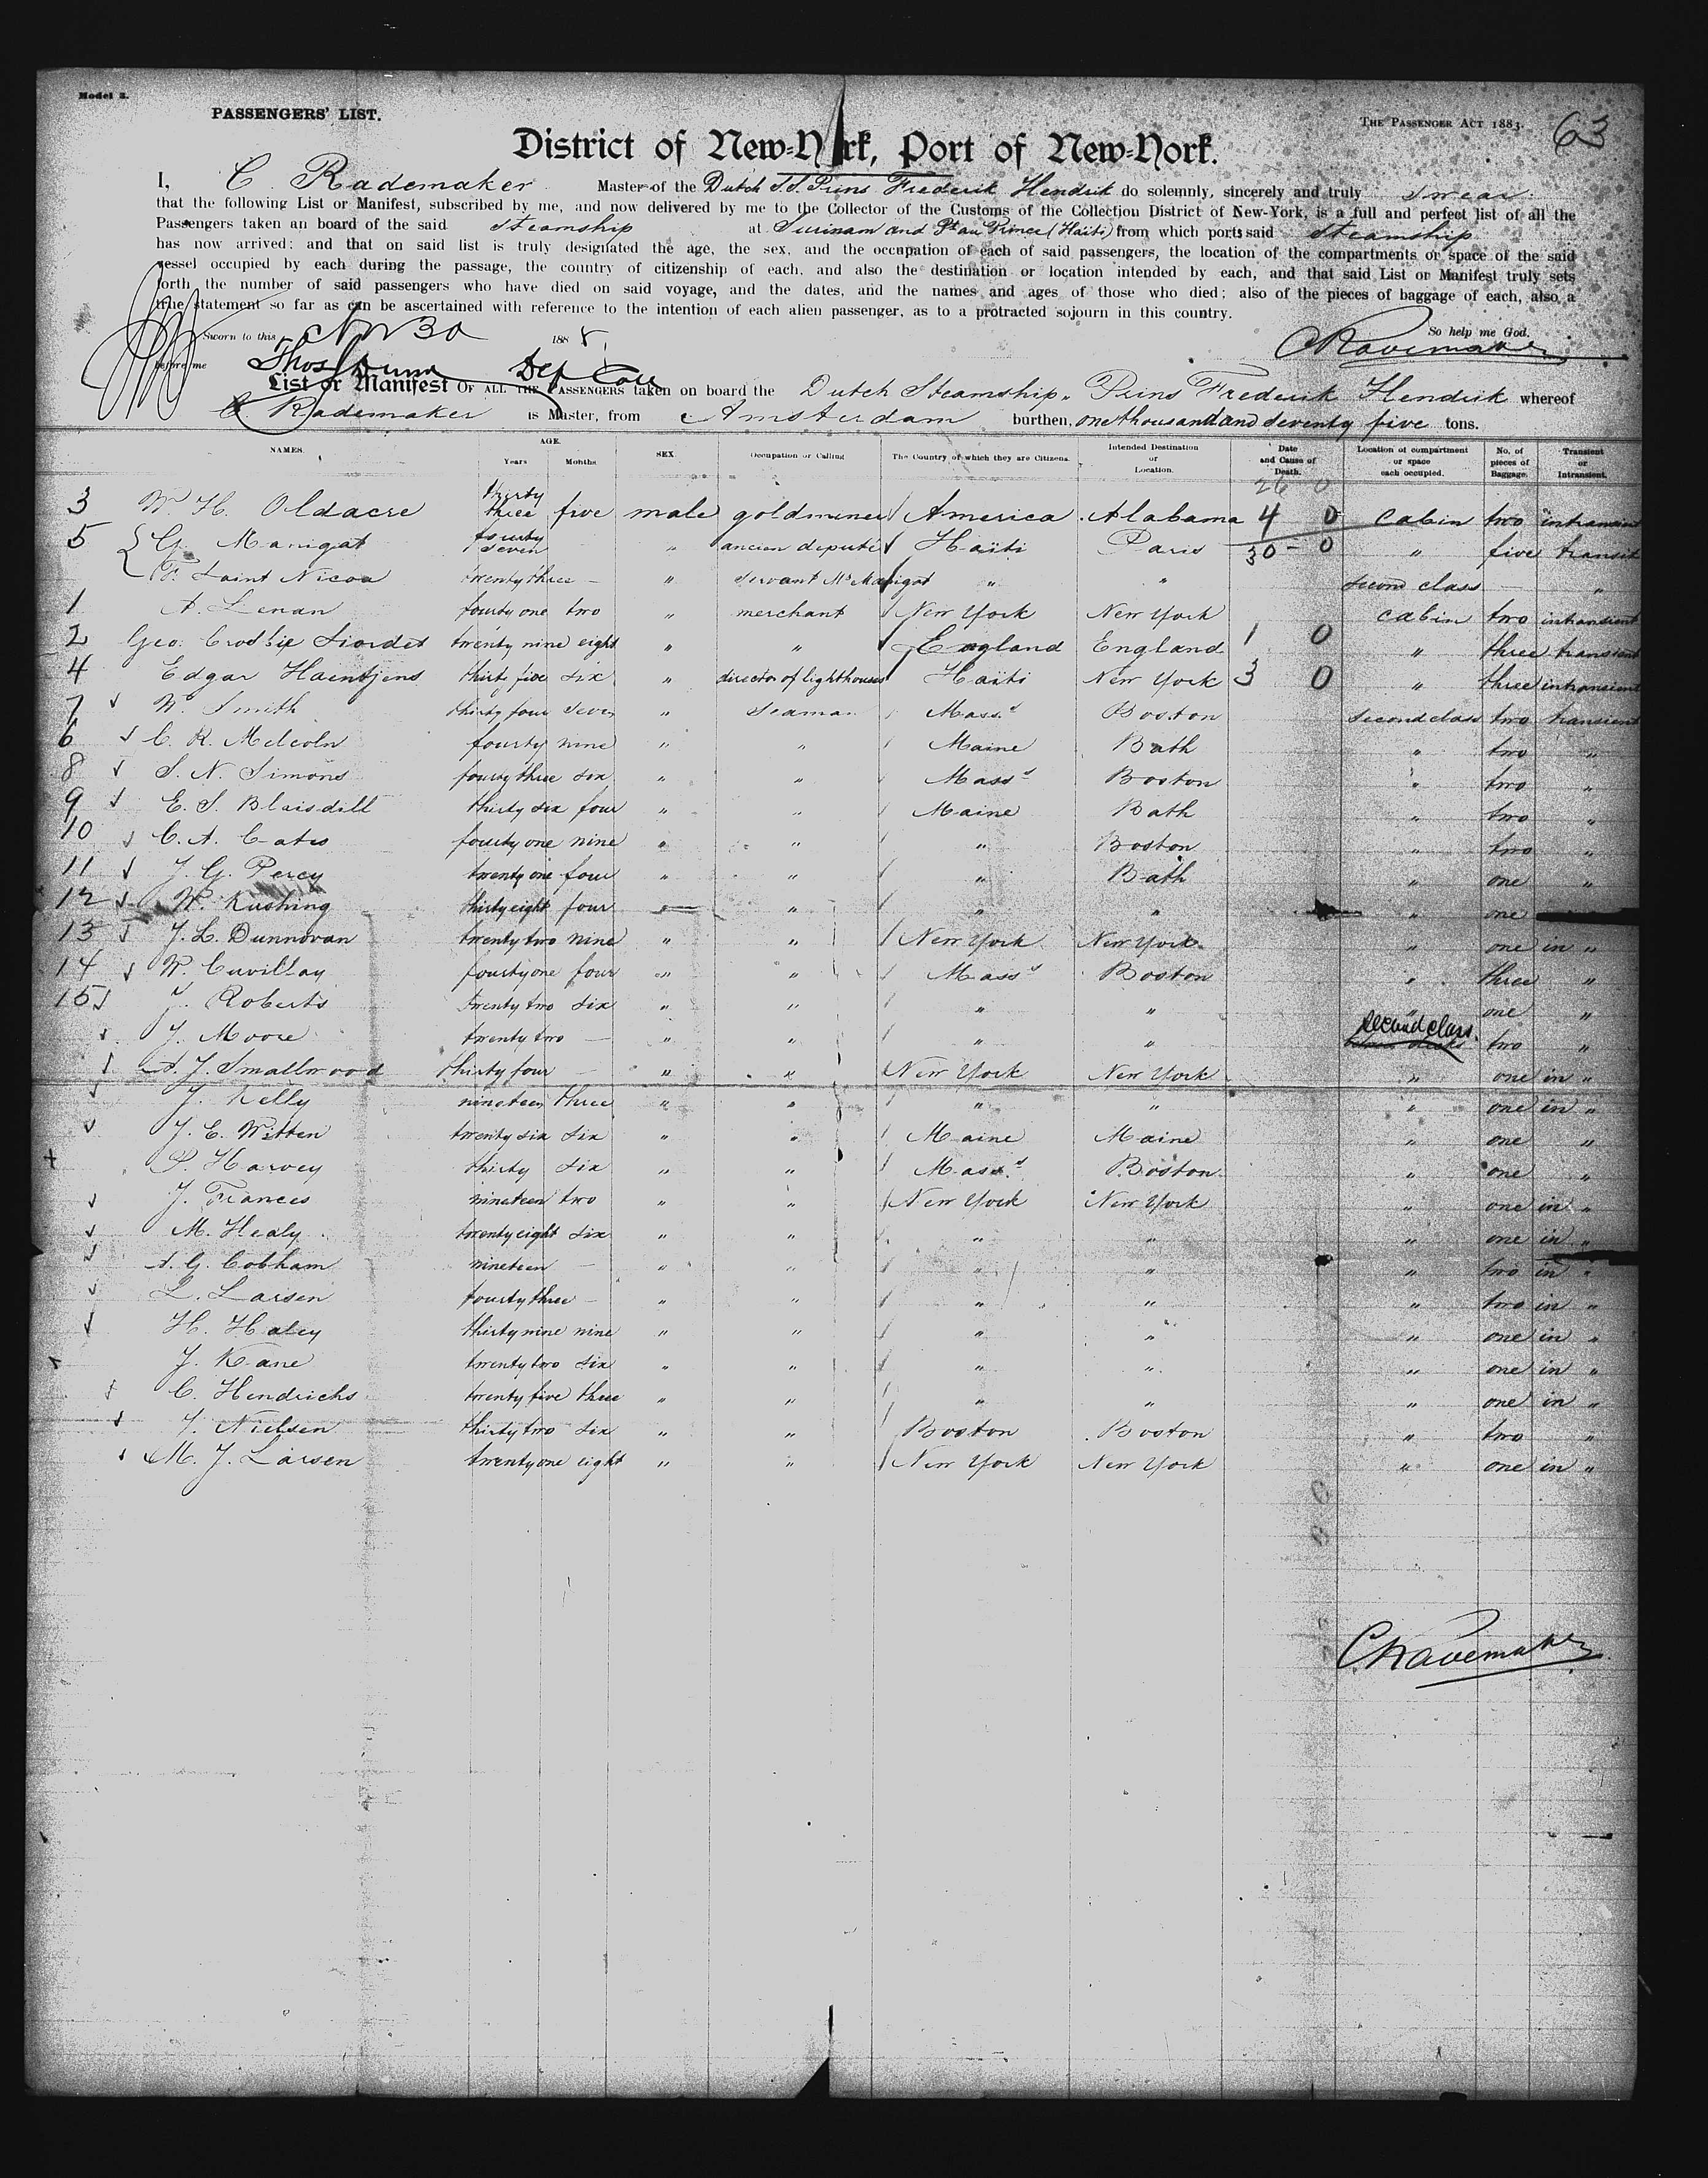 Model 3.
PASSENGERS' LIST.
THE PASSENGER ACT 1883.
63
District of New-York, Port of New-York.
I, C. Rademaker Master of the Dutch S.S. Prins Frederik Hendrik do solemnly, sincerely and truly swear:
that the following List or Manifest, subscribed by me, and now delivered by me to the Collector of the Customs of the Collection District of New-York, is a full and perfect list of all the
Passengers taken an board of the said steamship at Surinam and Pt au Prince (Haïti) from which ports said steamship
has now arrived: and that on said list is truly designated the age, the sex, and the occupation of each of said passengers, the location of the compartments or space of the said
vessel occupied by each during the passage, the country of citizenship of each, and also the destination or location intended by each, and that said List or Manifest truly sets
forth the number of said passengers who have died on said voyage, and the dates, and the names and ages of those who died; also of the pieces of baggage of each, also a
true statement so far as can be ascertained with reference to the intention of each alien passenger, as to a protracted sojourn in this country.
Sworn to this Nov 30 1888.
So help me God.
before me Thos Dunn Dep Coll
CRademaker
List or Manifest OF ALL THE PASSENGERS taken on board the Dutch Steamship "Prins Frederik Hendrik whereof
C Rademaker is Master, from Amsterdam burthen, one thousand and seventy five tons.
NAMES. AGE. Years Months SEX Occupation or Calling The Country of which they are Citizens. Intended Destination or Location. Date and Cause of Death. Location of compartment or space each occupied. No. of pieces of Baggage. Transient or Intransient.
26 0
3 W. H. Oldacre thirty three five male goldminer America Alabama 4 0 Cabin two intransient
5 G. Manigat fourty seven " ancien deputé Haïti Paris 30 - 0 " five transit
F. Saint Nicoa twenty three - " Servant Mr Manigat " " Second class - "
1 A. Lenan fourty one two " merchant New York New York cabin two intransient
2 Geo. Crosbie Siordet twenty nine eight " " England England 1 0 " three transient
4 Edgar Haentjens thirty five six " director of lighthouses Haïti New York 3 0 " three intransient
7 W. Smith thirty four seven " Seaman Masss Boston Second class two transient
6 C. R. Melcoln fourty nine " " Maine Bath " two "
8 S. N. Simons fourty three six " " Masss Boston " two "
9 E. S. Blaisdill thirty six four " " Maine Bath " two "
10 C. A. Cates fourty one nine " " " Boston " two "
11 J. G. Percy twenty one four " " " Bath " one "
12 W. Kushing thirty eight four " " " " " one
13 J. L. Dunnovan twenty two nine " " New York New York " one in "
14 W. Cuvillay fourty one four " " Masss Boston " three "
15 J. Roberts twenty two six " " " " " one "
J. Moore twenty two - " " " " second class two "
A. J. Smallwood thirty four - " " New York New York " one in "
J. Kelly nineteen three " " " " " one in "
J. E. Witten twenty six six " " Maine Maine " one "
P. Harvey thirty six " " Masss Boston " one "
J. Frances nineteen two " " New York New York " one in "
M. Healy twenty eight six " " " " " one in "
A. G. Cobham nineteen - " " " " " two in "
L. Larsen fourty three - " " " " " two in "
H. Haley thirty nine nine " " " " " one in "
J. Kane twenty two six " " " " " one in "
C. Hendrichs twenty five three " " " " " one in "
Nielsen thirty two six " " Boston Boston " two "
M. J. Larsen twenty one eight " " New York New York " one in "
CRademaker